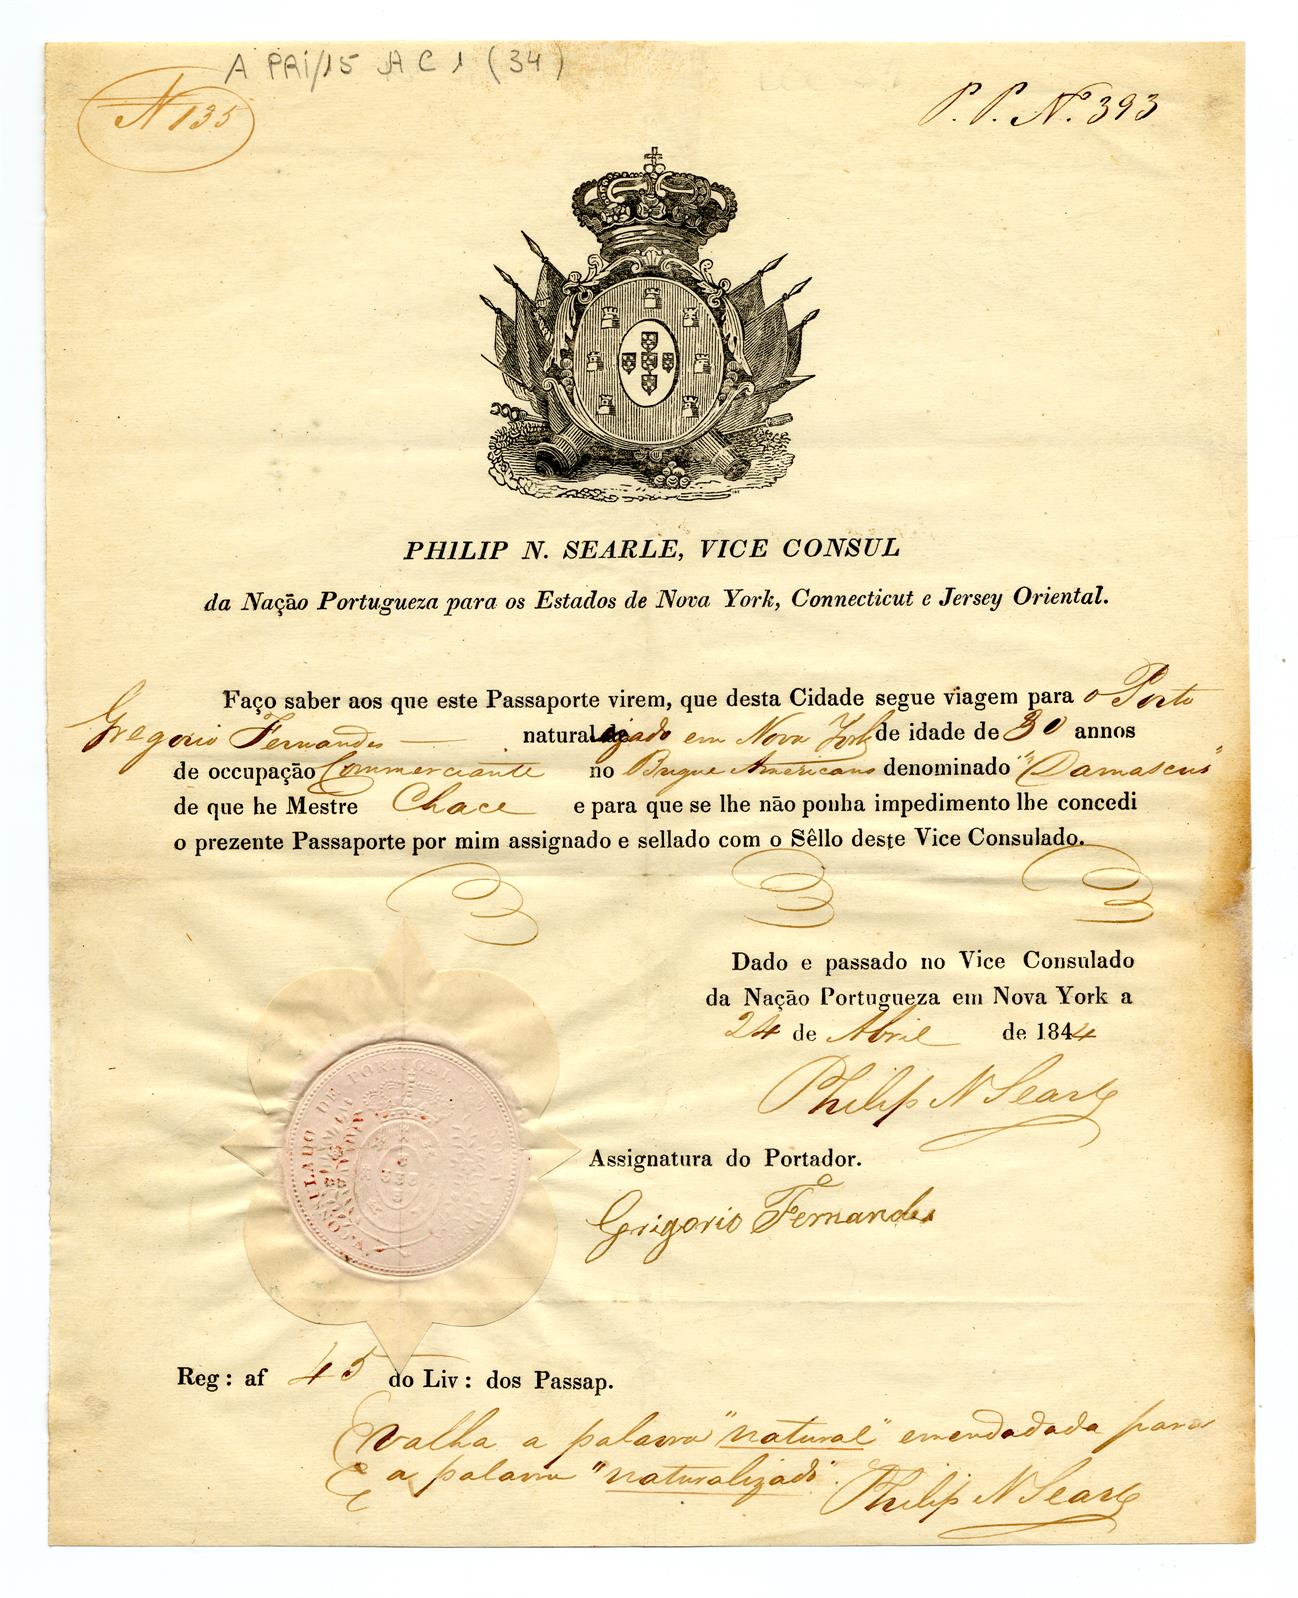 A PRI/15 AC 1 (34)
N 135
P. P. Nº. 393
PHILIP N. SEARLE, VICE CONSUL
da Nação Portugueza para os Estados de Nova York, Connecticut e Jersey Oriental.
Faço saber aos que este Passaporte virem, que desta Cidade segue viagem para o Porto
Gregorio Fernandes naturalizado em Nova York de idade de 30 annos
de occupação Commerciante no Brigue Americano denominado "Damascus"
de que he Mestre Chace e para que se lhe não ponha impedimento lhe concedi
o prezente Passaporte por mim assignado e sellado com o Sêllo deste Vice Consulado.
Dado e passado no Vice Consulado
da Nação Portugueza em Nova York a
24 de Abril de 1844
Philip N Searle
VICONSULADO DE PORTUGAL
NOVA YORK
Assignatura do Portador.
Grigorio Fernandes
Reg: af 45 do Liv: dos Passap.
Valha a palavra "natural" emendadada para
a palavra "naturalizado". Philip N Searle